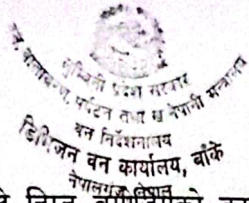 लुम्बिनी प्रदेश सरकार
वन, वातावरण, पर्यटन तथा खानेपानी मन्त्रालय
वन निर्देशनालय
डिभिजन वन कार्यालय, बाँके
नेपालगंज, नेपाल